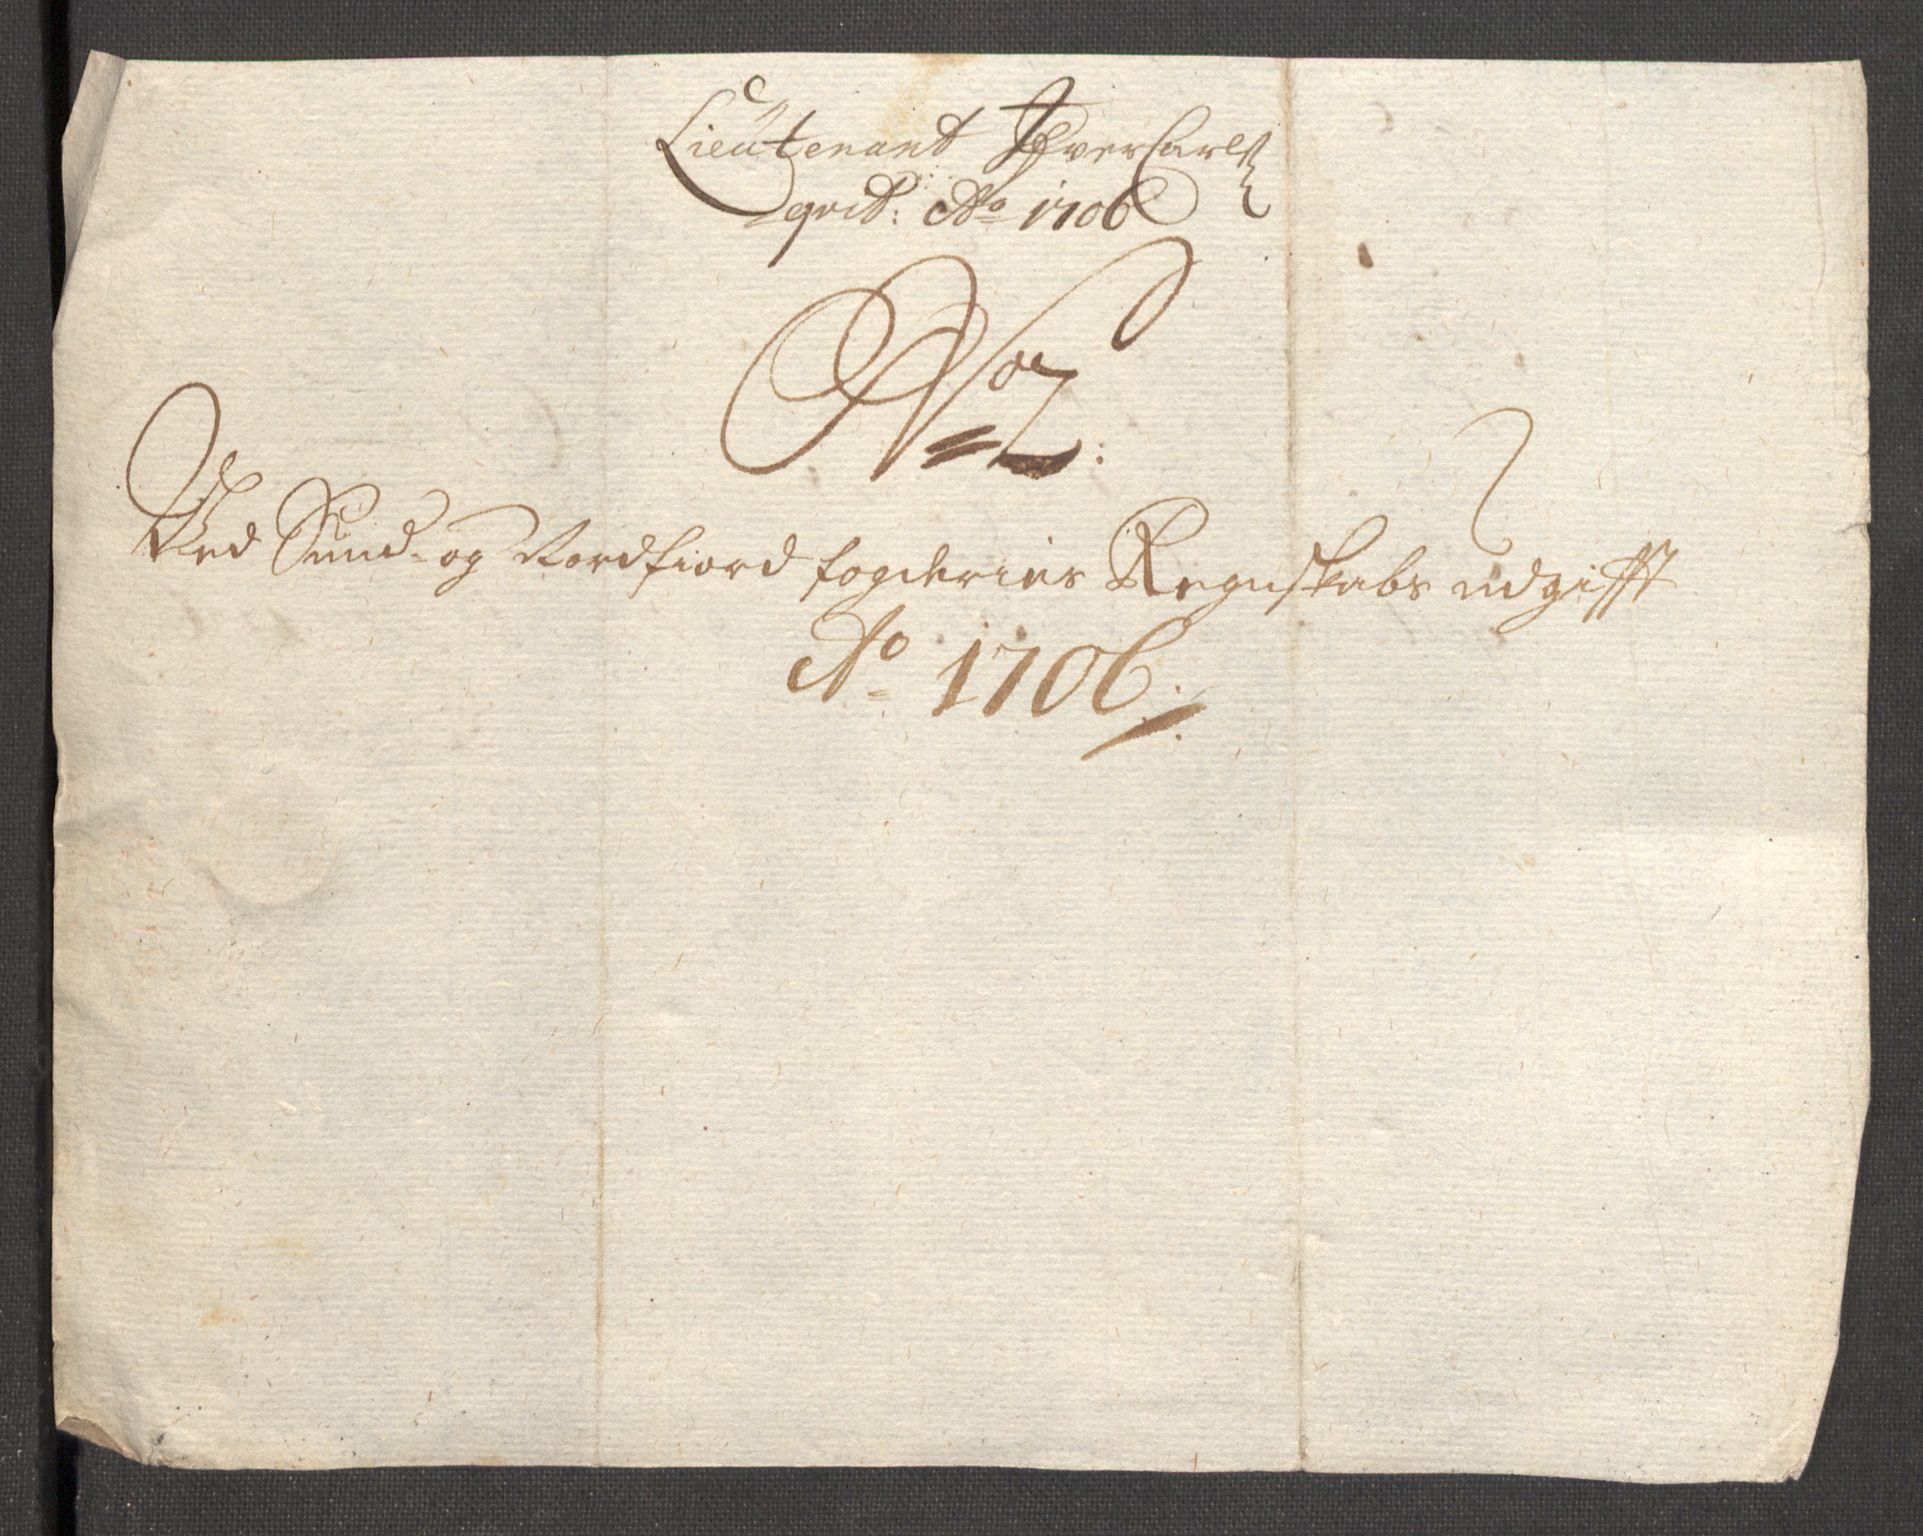 Lieutenant Ifver Carls
qvit: Ao 1706
No 2:
Ved Sund- og Nordfiord fogderies Regnskabs udgifft
Ao 1706